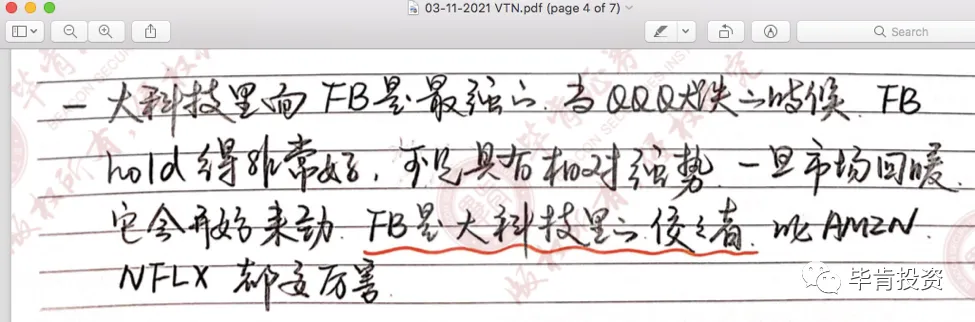 03-11-2021 VTN.pdf (page 4 of 7)
Search
一 大科技里面 FB是最强的. 当QQQ大跌的时候 FB
hold 得非常好, 可见具有相对强势. 一旦市场回暖.
它会开始来劲. FB是大科技里的佼佼者. 比 AMZN.
NFLX 都要厉害.
毕肯投资